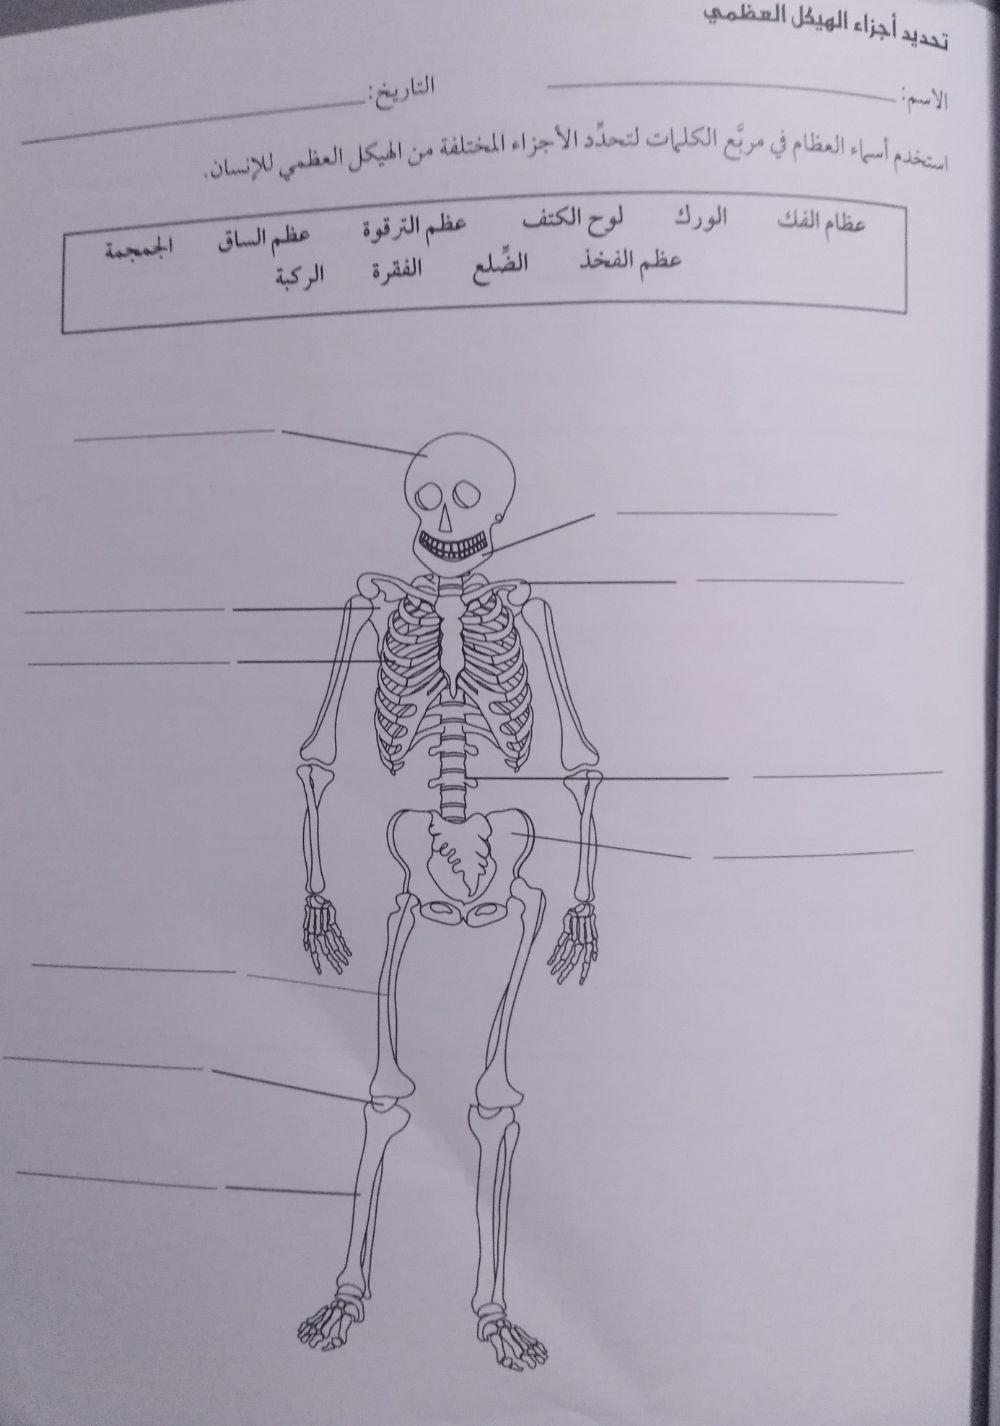 تحديد أجزاء الهيكل العظمي
الاسم: التاريخ:
استخدم أسماء العظام في مربَّع الكلمات لتحدِّد الأجزاء المختلفة من الهيكل العظمي للإنسان.
عظام الفك الورك لوح الكتف عظم الترقوة عظم الساق الجمجمة
عظم الفخذ الضِّلع الفقرة الركبة